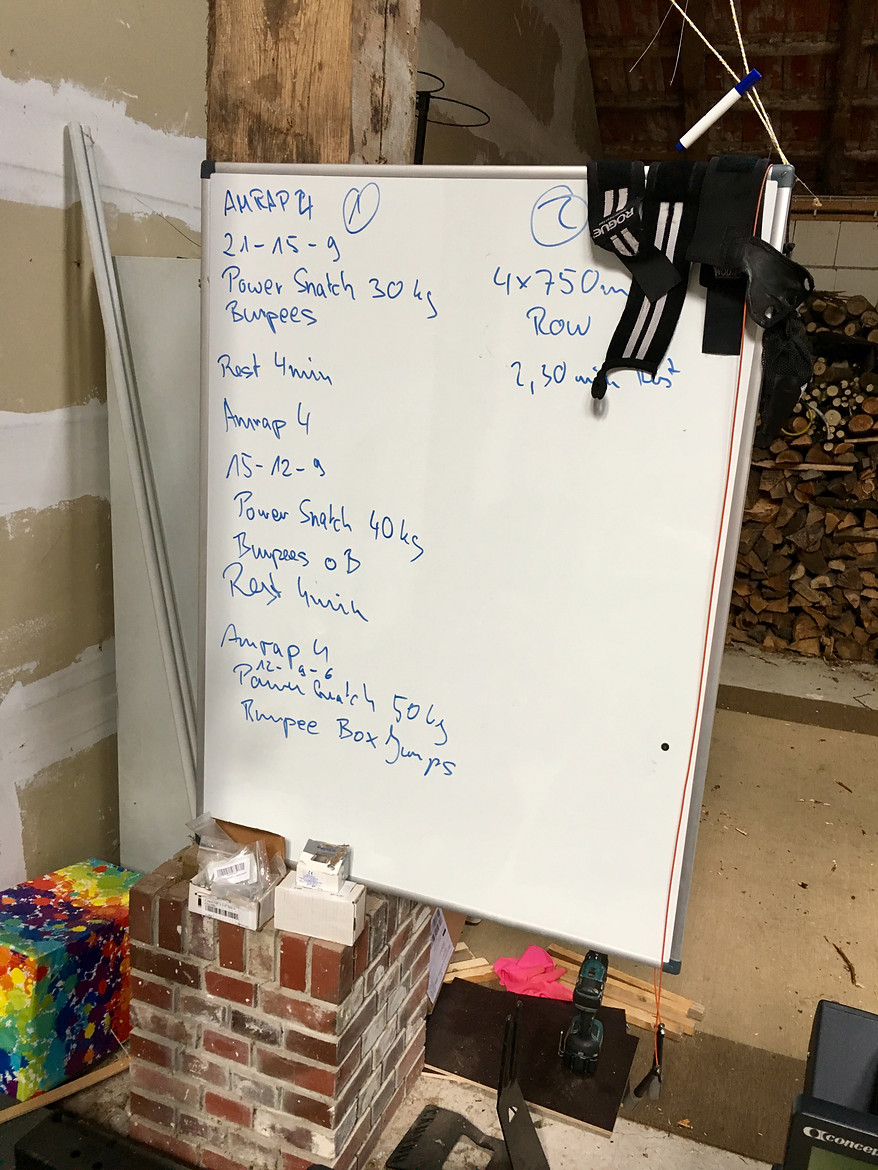 AMRAP 4
1
21-15-9
Power Snatch 30 kg
Burpees
Rest 4min
Amrap 4
15-12-9
Power Snatch 40 kg
Burpees oB
Rest 4min
Amrap 4
12-9-6
Power Snatch 50 kg
Burpee Box Jumps
2
4x750m
Row
2,30 min Rest
ROGUE
concep